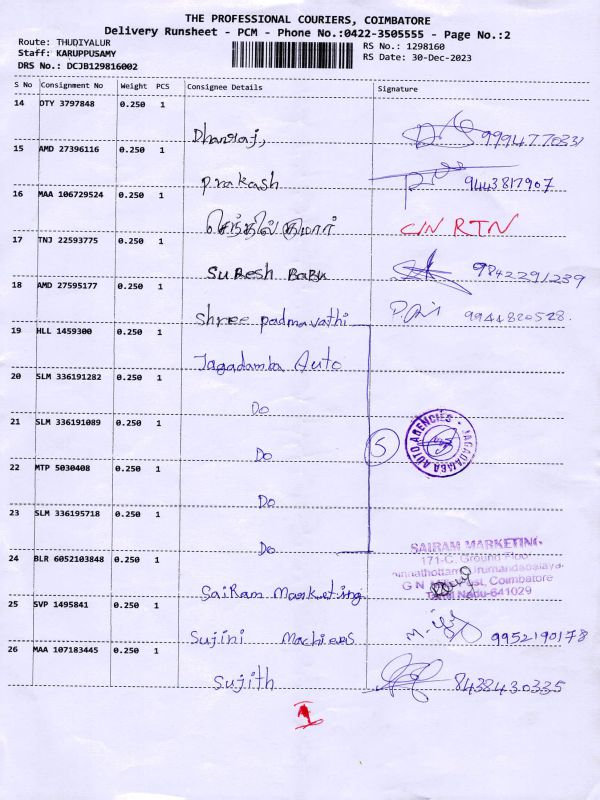 THE PROFESSIONAL COURIERS, COIMBATORE
Delivery Runsheet - PCM - Phone No.:0422-3505555 - Page No.:2
Route: THUDIYALUR
RS No.: 1298160
Staff: KARUPPUSAMY
RS Date: 30-Dec-2023
DRS No.: DCJB129816002
S No Consignment No Weight PCS Consignee Details Signature
14 DTY 3797848 0.250 1
Dhanraj, 9994770831
15 AMD 27396116 0.250 1
Prakash 9443817907
16 MAA 106729524 0.250 1
செந்தில்குமார் C/N RTN
17 TNJ 22593775 0.250 1
Suresh Babu 9842291239
18 AMD 27595177 0.250 1
Shree padmavathi 9944820528.
19 HLL 1459300 0.250 1
Jagadamba Auto
20 SLM 336191282 0.250 1
Do
21 SLM 336191089 0.250 1
Do 5 JAGADAMBA AUTO AGENCIES
22 MTP 5030408 0.250 1
Do
23 SLM 336195718 0.250 1
Do
SAIRAM MARKETING
24 BLR 6052103848 0.250 1
171-C, Ground
G N Coimbatore
SaiRam Marketing
Tamil Nadu-641029
25 SVP 1495841 0.250 1
Sujini Machiens 9952190178
26 MAA 107183445 0.250 1
Sujith 8438430335